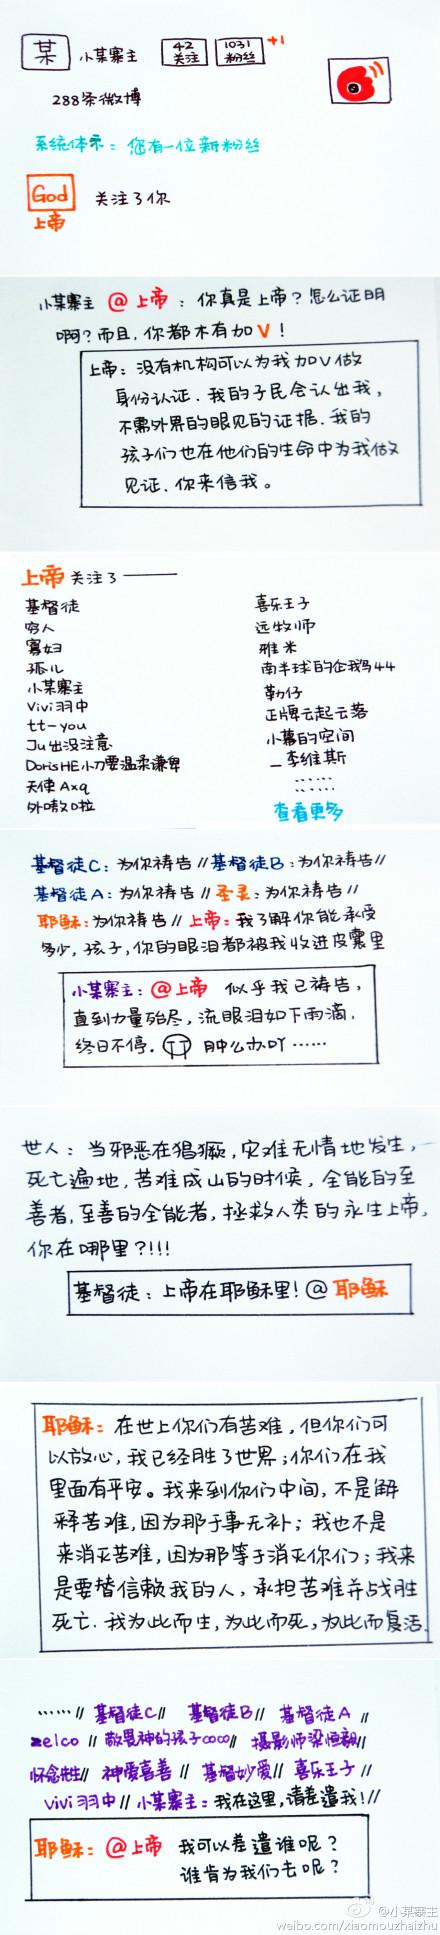 某 小某寨主 42 关注 1031 粉丝 +1
288条微博
系统体示：您有一位新粉丝
God 关注了你
上帝
小某寨主 @上帝：你真是上帝？怎么证明
啊？而且，你都木有加V！
上帝：没有机构可以为我加V做
身份认证．我的子民会认出我，
不需外界的眼见的证据．我的
孩子们也在他们的生命中为我做
见证．你来信我。
上帝 关注了——
基督徒
穷人
寡妇
孤儿
小某寨主
Vivi羽中
tt-you
Ju出没注意
DorisHE小刀要温柔谦卑
天使Axq
外嗷口啦
喜乐王子
远牧师
雅米
南半球的企鹅44
勒仔
正牌云起云落
小幕的空间
－李维斯
……
查看更多
基督徒C：为你祷告//基督徒B：为你祷告//
基督徒A：为你祷告//圣灵：为你祷告//
耶稣：为你祷告//上帝：我了解你能承受
多少，孩子，你的眼泪都被我收进皮囊里
小某寨主：@上帝 似乎我已祷告，
直到力量殆尽，流眼泪如下雨滴，
终日不停． 肿么办吖……
世人：当邪恶在猖獗，灾难无情地发生，
死亡遍地，苦难成山的时候，全能的至
善者，至善的全能者，拯救人类的永生上帝，
你在哪里？!!!
基督徒：上帝在耶稣里！@耶稣
耶稣：在世上你们有苦难，但你们可
以放心，我已经胜了世界；你们在我
里面有平安。我来到你们中间，不是解
释苦难，因为那于事无补；我也不是
来消灭苦难，因为那等于消灭你们；我来
是要替信赖我的人，承担苦难并战胜
死亡．我为此而生，为此而死，为此而复活．
……// 基督徒C// 基督徒B// 基督徒A //
zelco // 敬畏神的孩子coco// 摄影师梁恒毅//
怀念先生// 神爱喜善 // 基督妙爱// 喜乐王子//
vivi羽中// 小某寨主：我在这里，请差遣我！//
耶稣：@上帝 我可以差遣谁呢？
谁肯为我们去呢？
@小某寨主
weibo.com/xiaomouzhaizhu